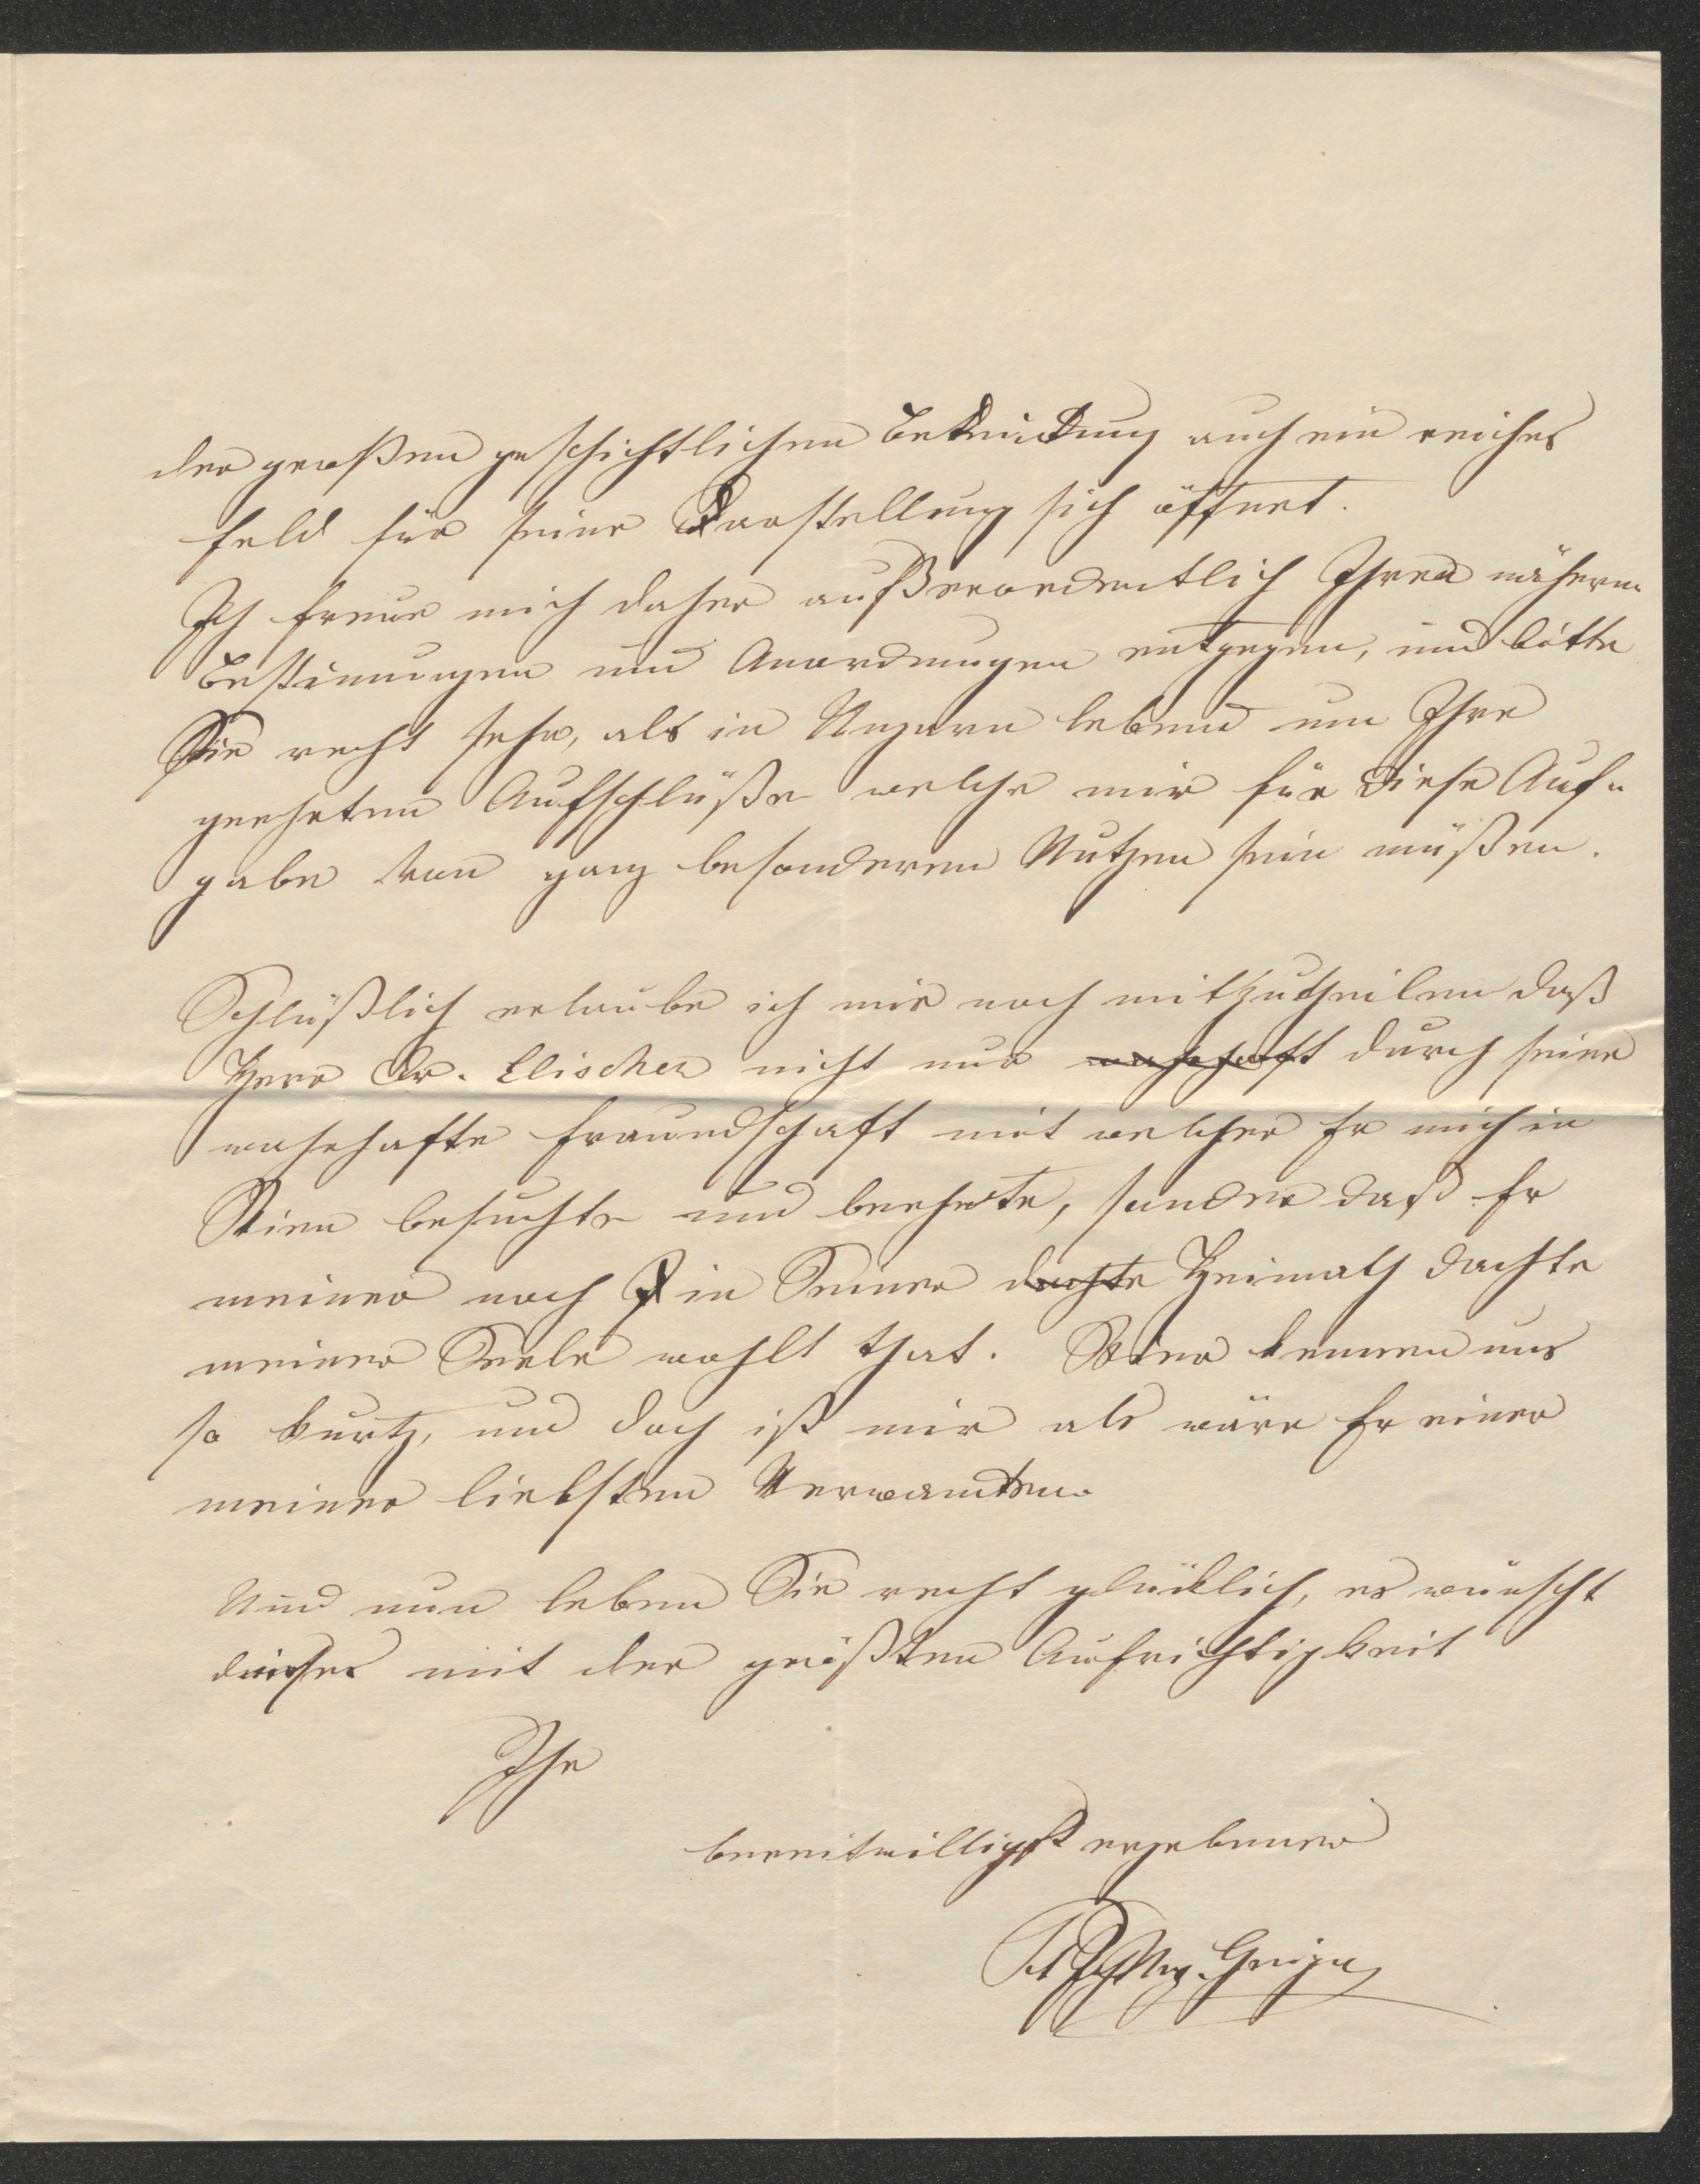 der großen geschichtlichen Bedeutung auch ein reiches
Feld für seine Darstellung sich öffnet.
Ich freue mich daher außerordentlich Ihren nähern
Bestimungen und Anordnungen entgegen, und bitte
Sie recht sehr, als in Ungarn lebend um Ihre
geehrten Aufschlüße welche mir für diese Auf-
gabe von ganz besonderen Nutzen sein müßen.
Schlüßlich erlaube ich mir noch mitzutheilen daß
Herr Dr. Elischer nicht nur wahrhaft durch seine
wahrhafte Freundschaft mit welcher Er mich in
Wien besuchte und beehrte, sonder daß Er
meiner noch in Seiner dachte Heimath dachte
meiner Seele wohlt that. Wier kennen uns
so kurtz, und doch ist mir als wäre Er einer
meiner liebsten Verwandten.
Und nun leben Sie recht glücklich, es wünscht
dieses mit der größten Aufrichtigkeit
Ihr
bereitwilligst ergebener
Geiger